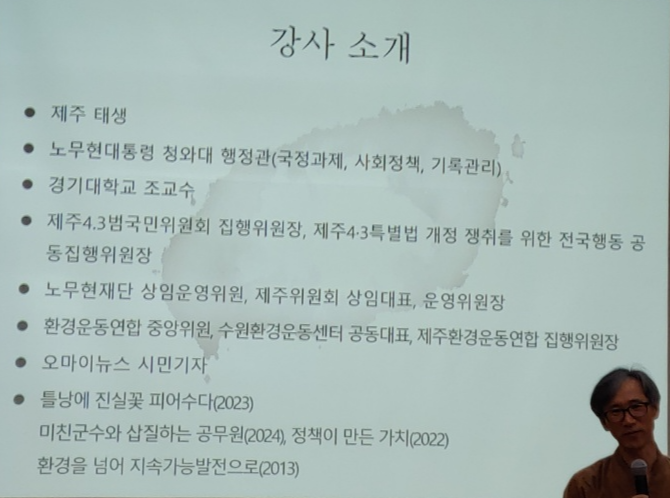 강사 소개
● 제주 태생
● 노무현대통령 청와대 행정관(국정과제, 사회정책, 기록관리)
● 경기대학교 조교수
● 제주4.3범국민위원회 집행위원장, 제주4·3특별법 개정 쟁취를 위한 전국행동 공
동집행위원장
● 노무현재단 상임운영위원, 제주위원회 상임대표, 운영위원장
● 환경운동연합 중앙위원, 수원환경운동센터 공동대표, 제주환경운동연합 집행위원장
● 오마이뉴스 시민기자
● 틀낭에 진실꽃 피어수다(2023)
미친군수와 삽질하는 공무원(2024), 정책이 만든 가치(2022)
환경을 넘어 지속가능발전으로(2013)